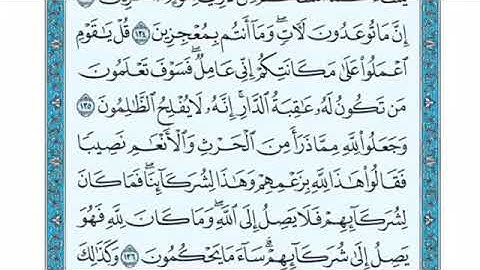 إِنَّ مَا تُوعَدُونَ لَآتٍ ۖ وَمَا أَنتُم بِمُعْجِزِينَ ﴿١٣٤﴾ قُلْ يَٰقَوْمِ
ٱعْمَلُوا۟ عَلَىٰ مَكَانَتِكُمْ إِنِّى عَامِلٌ ۖ فَسَوْفَ تَعْلَمُونَ
مَن تَكُونُ لَهُۥ عَٰقِبَةُ ٱلدَّارِ ۗ إِنَّهُۥ لَا يُفْلِحُ ٱلظَّٰلِمُونَ ﴿١٣٥﴾
وَجَعَلُوا۟ لِلَّهِ مِمَّا ذَرَأَ مِنَ ٱلْحَرْثِ وَٱلْأَنْعَٰمِ نَصِيبًا
فَقَالُوا۟ هَٰذَا لِلَّهِ بِزَعْمِهِمْ وَهَٰذَا لِشُرَكَآئِنَا ۖ فَمَا كَانَ
لِشُرَكَآئِهِمْ فَلَا يَصِلُ إِلَى ٱللَّهِ ۖ وَمَا كَانَ لِلَّهِ فَهُوَ
يَصِلُ إِلَىٰ شُرَكَآئِهِمْ ۗ سَآءَ مَا يَحْكُمُونَ ﴿١٣٦﴾ وَكَذَٰلِكَ